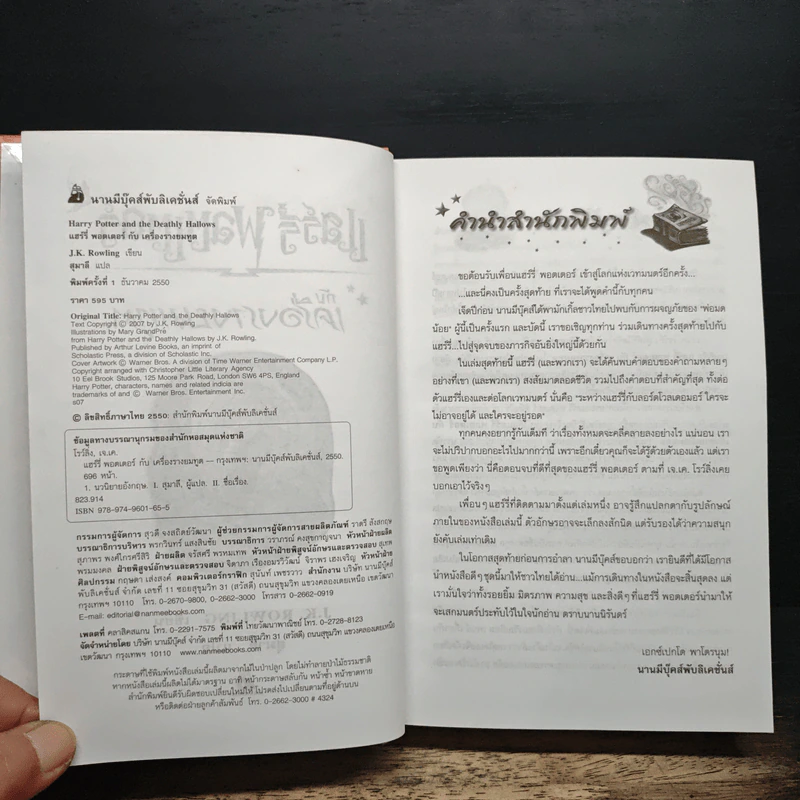 นานมีบุ๊คส์พับลิเคชั่นส์ จัดพิมพ์
Harry Potter and the Deathly Hallows
แฮร์รี่ พอตเตอร์ กับ เครื่องรางยมทูต
J.K. Rowling เขียน
สุมาลี แปล
พิมพ์ครั้งที่ 1 ธันวาคม 2550
ราคา 595 บาท
Original Title: Harry Potter and the Deathly Hallows
Text Copyright © 2007 by J.K. Rowling
Illustrations by Mary GrandPré
from Harry Potter and the Deathly Hallows by J.K. Rowling.
Published by Arthur Levine Books, an imprint of
Scholastic Press, a division of Scholastic Inc.
Cover Artwork © Warner Bros. A division of Time Warner Entertainment Company L.P.
Copyright arranged with Christopher Little Literary Agency
10 Eel Brook Studios, 125 Moore Park Road, London SW6 4PS, England
Harry Potter, characters, names and related indicia are
trademarks of and © Warner Bros. Entertainment Inc.
s07
© ลิขสิทธิ์ภาษาไทย 2550: สำนักพิมพ์นานมีบุ๊คส์พับลิเคชั่นส์
ข้อมูลทางบรรณานุกรมของสำนักหอสมุดแห่งชาติ
โรว์ลิ่ง, เจ.เค.
แฮร์รี่ พอตเตอร์ กับ เครื่องรางยมทูต — กรุงเทพฯ: นานมีบุ๊คส์พับลิเคชั่นส์, 2550.
696 หน้า.
1. นวนิยายอังกฤษ. I. สุมาลี, ผู้แปล. II. ชื่อเรื่อง.
823.914
ISBN 978-974-9601-65-5
กรรมการผู้จัดการ สุวดี จงสถิตย์วัฒนา ผู้ช่วยกรรมการผู้จัดการสายผลิตภัณฑ์ ราตรี สังสกฤษ
บรรณาธิการบริหาร พรกวินทร์ แสงสินชัย บรรณาธิการ วราภรณ์ คงสุขกาญจนา หัวหน้าฝ่ายผลิต
สุภาพร พงศ์ไกรศรีสิริ ฝ่ายผลิต จรัสศรี พรหมเทพ หัวหน้าฝ่ายพิสูจน์อักษรและตรวจสอบ สุเทพ
พรมมงคล ฝ่ายพิสูจน์อักษรและตรวจสอบ จิดาภา เรืองอมรวิวัฒน์ จิราพร เฮงเจริญ หัวหน้าฝ่าย
ศิลปกรรม กฤษดา เส่งสงค์ คอมพิวเตอร์กราฟิก สุนันท์ เพชรวาว สำนักงาน บริษัท นานมีบุ๊คส์
พับลิเคชั่นส์ จำกัด เลขที่ 11 ซอยสุขุมวิท 31 (สวัสดี) ถนนสุขุมวิท แขวงคลองเตยเหนือ เขตวัฒนา
กรุงเทพฯ 10110 โทร. 0-2670-9800, 0-2662-3000 โทรสาร 0-2662-0919
E-mail: editorial@nanmeebooks.com
เพลตที่ คลาสิคสแกน โทร. 0-2291-7575 พิมพ์ที่ ไทยวัฒนาพาณิชย์ โทร. 0-2728-8123
จัดจำหน่ายโดย บริษัท นานมีบุ๊คส์ จำกัด เลขที่ 11 ซอยสุขุมวิท 31 (สวัสดี) ถนนสุขุมวิท แขวงคลองเตยเหนือ
เขตวัฒนา กรุงเทพฯ 10110 www.nanmeebooks.com
กระดาษที่ใช้พิมพ์หนังสือเล่มนี้ผลิตมาจากไม้ในป่าปลูก โดยไม่ทำลายป่าไม้ธรรมชาติ
หากหนังสือเล่มนี้ผลิตไม่ได้มาตรฐาน อาทิ หน้ากระดาษสลับกัน หน้าซ้ำ หน้าขาดหาย
สำนักพิมพ์ยินดีรับผิดชอบเปลี่ยนใหม่ให้ โปรดส่งไปเปลี่ยนตามที่อยู่ด้านบน
หรือติดต่อฝ่ายลูกค้าสัมพันธ์ โทร. 0-2662-3000 # 4324
คำนำสำนักพิมพ์
ขอต้อนรับเพื่อนแฮร์รี่ พอตเตอร์ เข้าสู่โลกแห่งเวทมนตร์อีกครั้ง...
...และนี่คงเป็นครั้งสุดท้าย ที่เราจะได้พูดคำนี้กับทุกคน
เจ็ดปีก่อน นานมีบุ๊คส์ได้พามักเกิ้ลชาวไทยไปพบกับการผจญภัยของ "พ่อมด
น้อย" ผู้นี้เป็นครั้งแรก และบัดนี้ เราขอเชิญทุกท่าน ร่วมเดินทางครั้งสุดท้ายไปกับ
แฮร์รี่...ไปสู่จุดจบของภารกิจอันยิ่งใหญ่นี้ด้วยกัน
ในเล่มสุดท้ายนี้ แฮร์รี่ (และพวกเรา) จะได้ค้นพบคำตอบของคำถามหลายๆ
อย่างที่เขา (และพวกเรา) สงสัยมาตลอดชีวิต รวมไปถึงคำตอบที่สำคัญที่สุด ทั้งต่อ
ตัวแฮร์รี่เองและต่อโลกเวทมนตร์ นั่นคือ "ระหว่างแฮร์รี่กับลอร์ดโวลเดอมอร์ ใครจะ
ไม่อาจอยู่ได้ และใครจะอยู่รอด"
ทุกคนคงอยากรู้กันเต็มที ว่าเรื่องทั้งหมดจะคลี่คลายลงอย่างไร แน่นอน เรา
จะไม่ปริปากบอกอะไรไปมากกว่านี้ เพราะอีกเดี๋ยวคุณก็จะได้รู้ด้วยตัวเองแล้ว แต่เรา
ขอพูดเพียงว่า นี่คือตอนจบที่ดีที่สุดของแฮร์รี่ พอตเตอร์ ตามที่ เจ.เค. โรว์ลิ่งเคย
บอกเอาไว้จริงๆ
เพื่อนๆ แฮร์รี่ที่ติดตามมาตั้งแต่เล่มหนึ่ง อาจรู้สึกแปลกตากับรูปลักษณ์
ภายในของหนังสือเล่มนี้ ตัวอักษรอาจจะเล็กลงสักนิด แต่รับรองได้ว่าความสนุก
ยังคับเล่มเท่าเดิม
ในโอกาสสุดท้ายก่อนการอำลา นานมีบุ๊คส์ขอบอกว่า เรายินดีที่ได้มีโอกาส
นำหนังสือดีๆ ชุดนี้มาให้ชาวไทยได้อ่าน...แม้การเดินทางในหนังสือจะสิ้นสุดลง แต่
เรามั่นใจว่าทั้งรอยยิ้ม มิตรภาพ ความสุข และสิ่งดีๆ ที่แฮร์รี่ พอตเตอร์นำมาให้
จะเสกมนตร์ประทับไว้ในใจนักอ่าน ตราบนานนิรันดร์
เอกซ์เปกโต พาโตรนุม!
นานมีบุ๊คส์พับลิเคชั่นส์